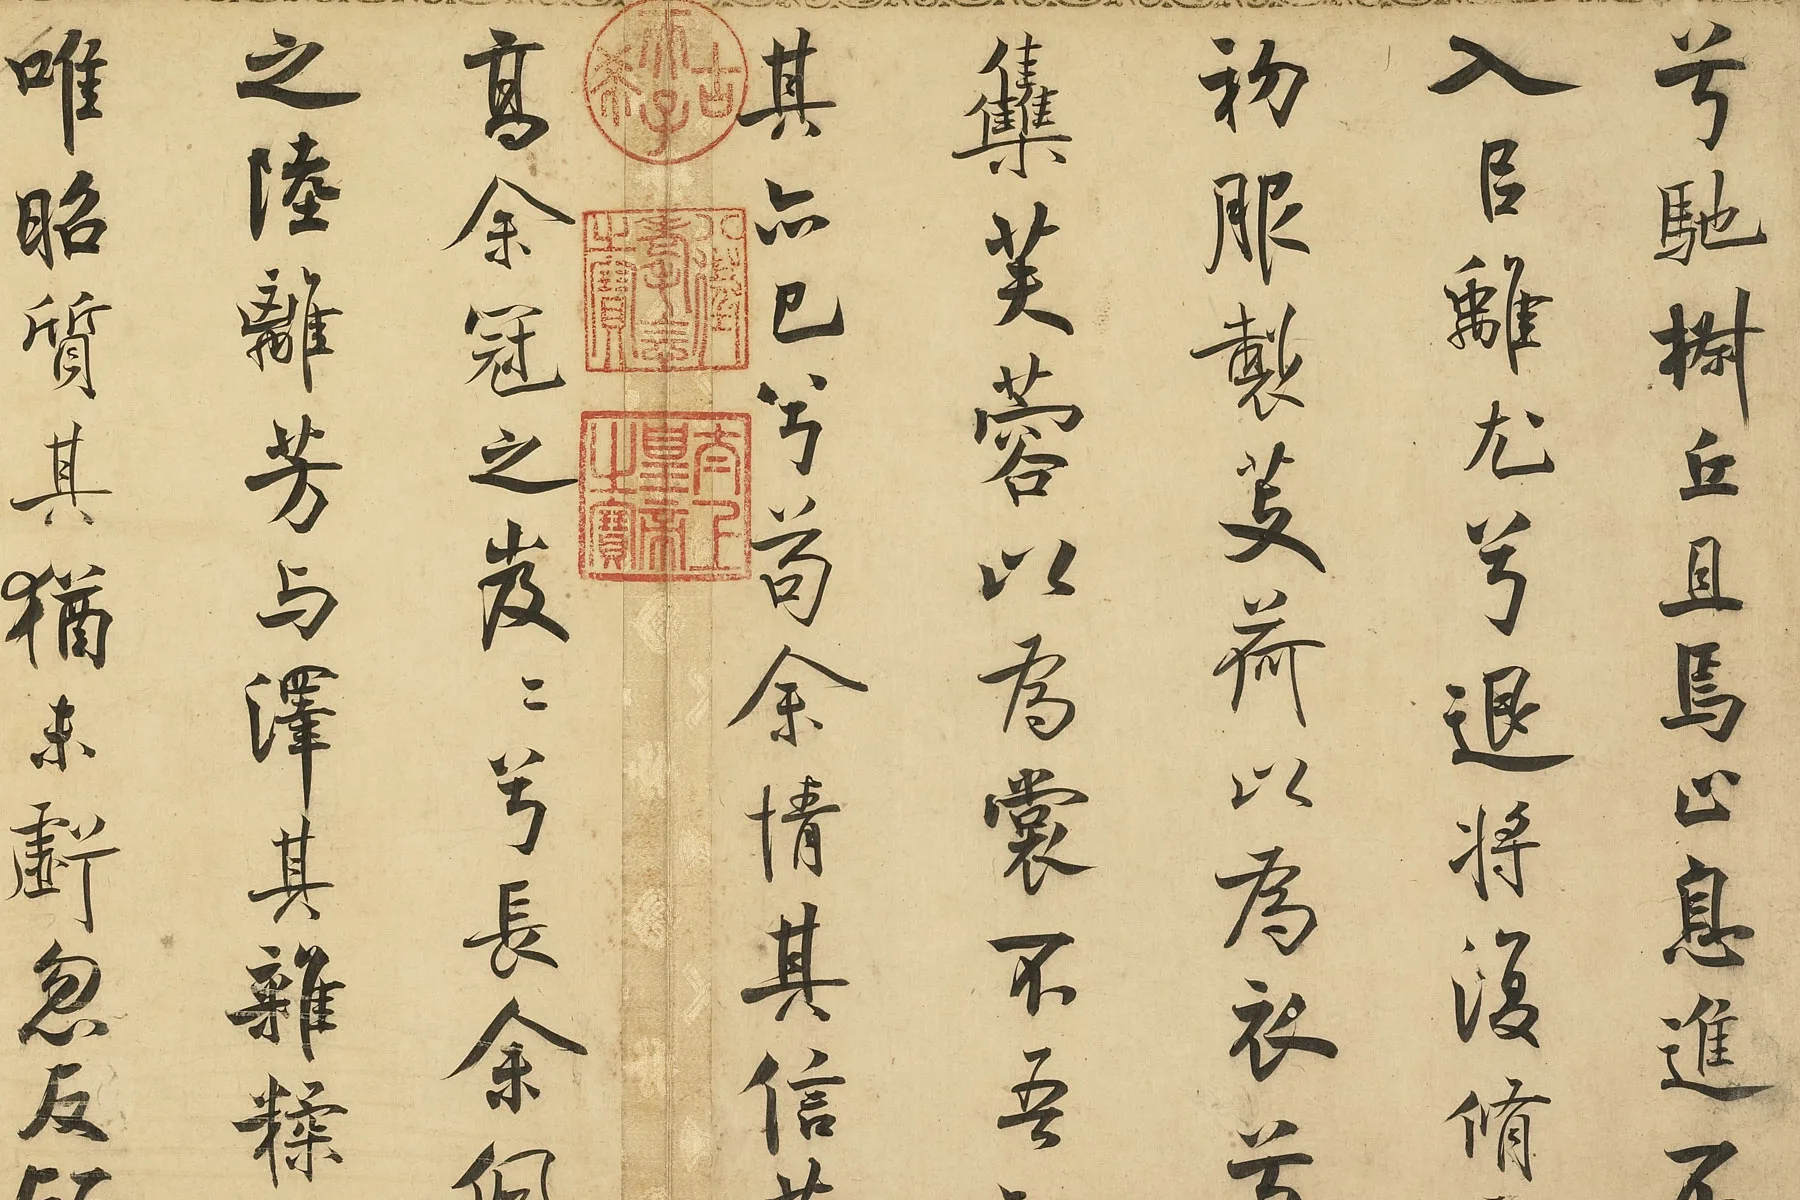 兮馳椒丘且焉止息進不
入㠯離尤兮退將復脩
初服製芰荷以為衣兮
集芙蓉以為裳不吾
其亦已兮苟余情其信其
高余冠之岌〻兮長余佩
之陸離芳与澤其雜糅
唯昭質其猶未虧忽反
古希天子
八徵耄念之寶
太上皇帝之寶